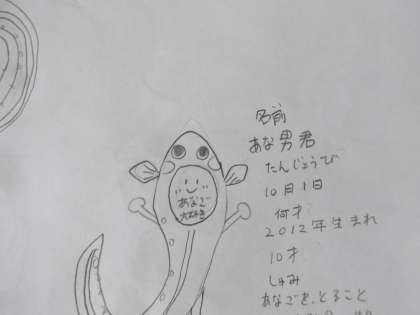 あなご
大好き
名前
あな男君
たんじょうび
10月1日
何才
2012年生まれ
10才
しゅみ
あなごを、とること